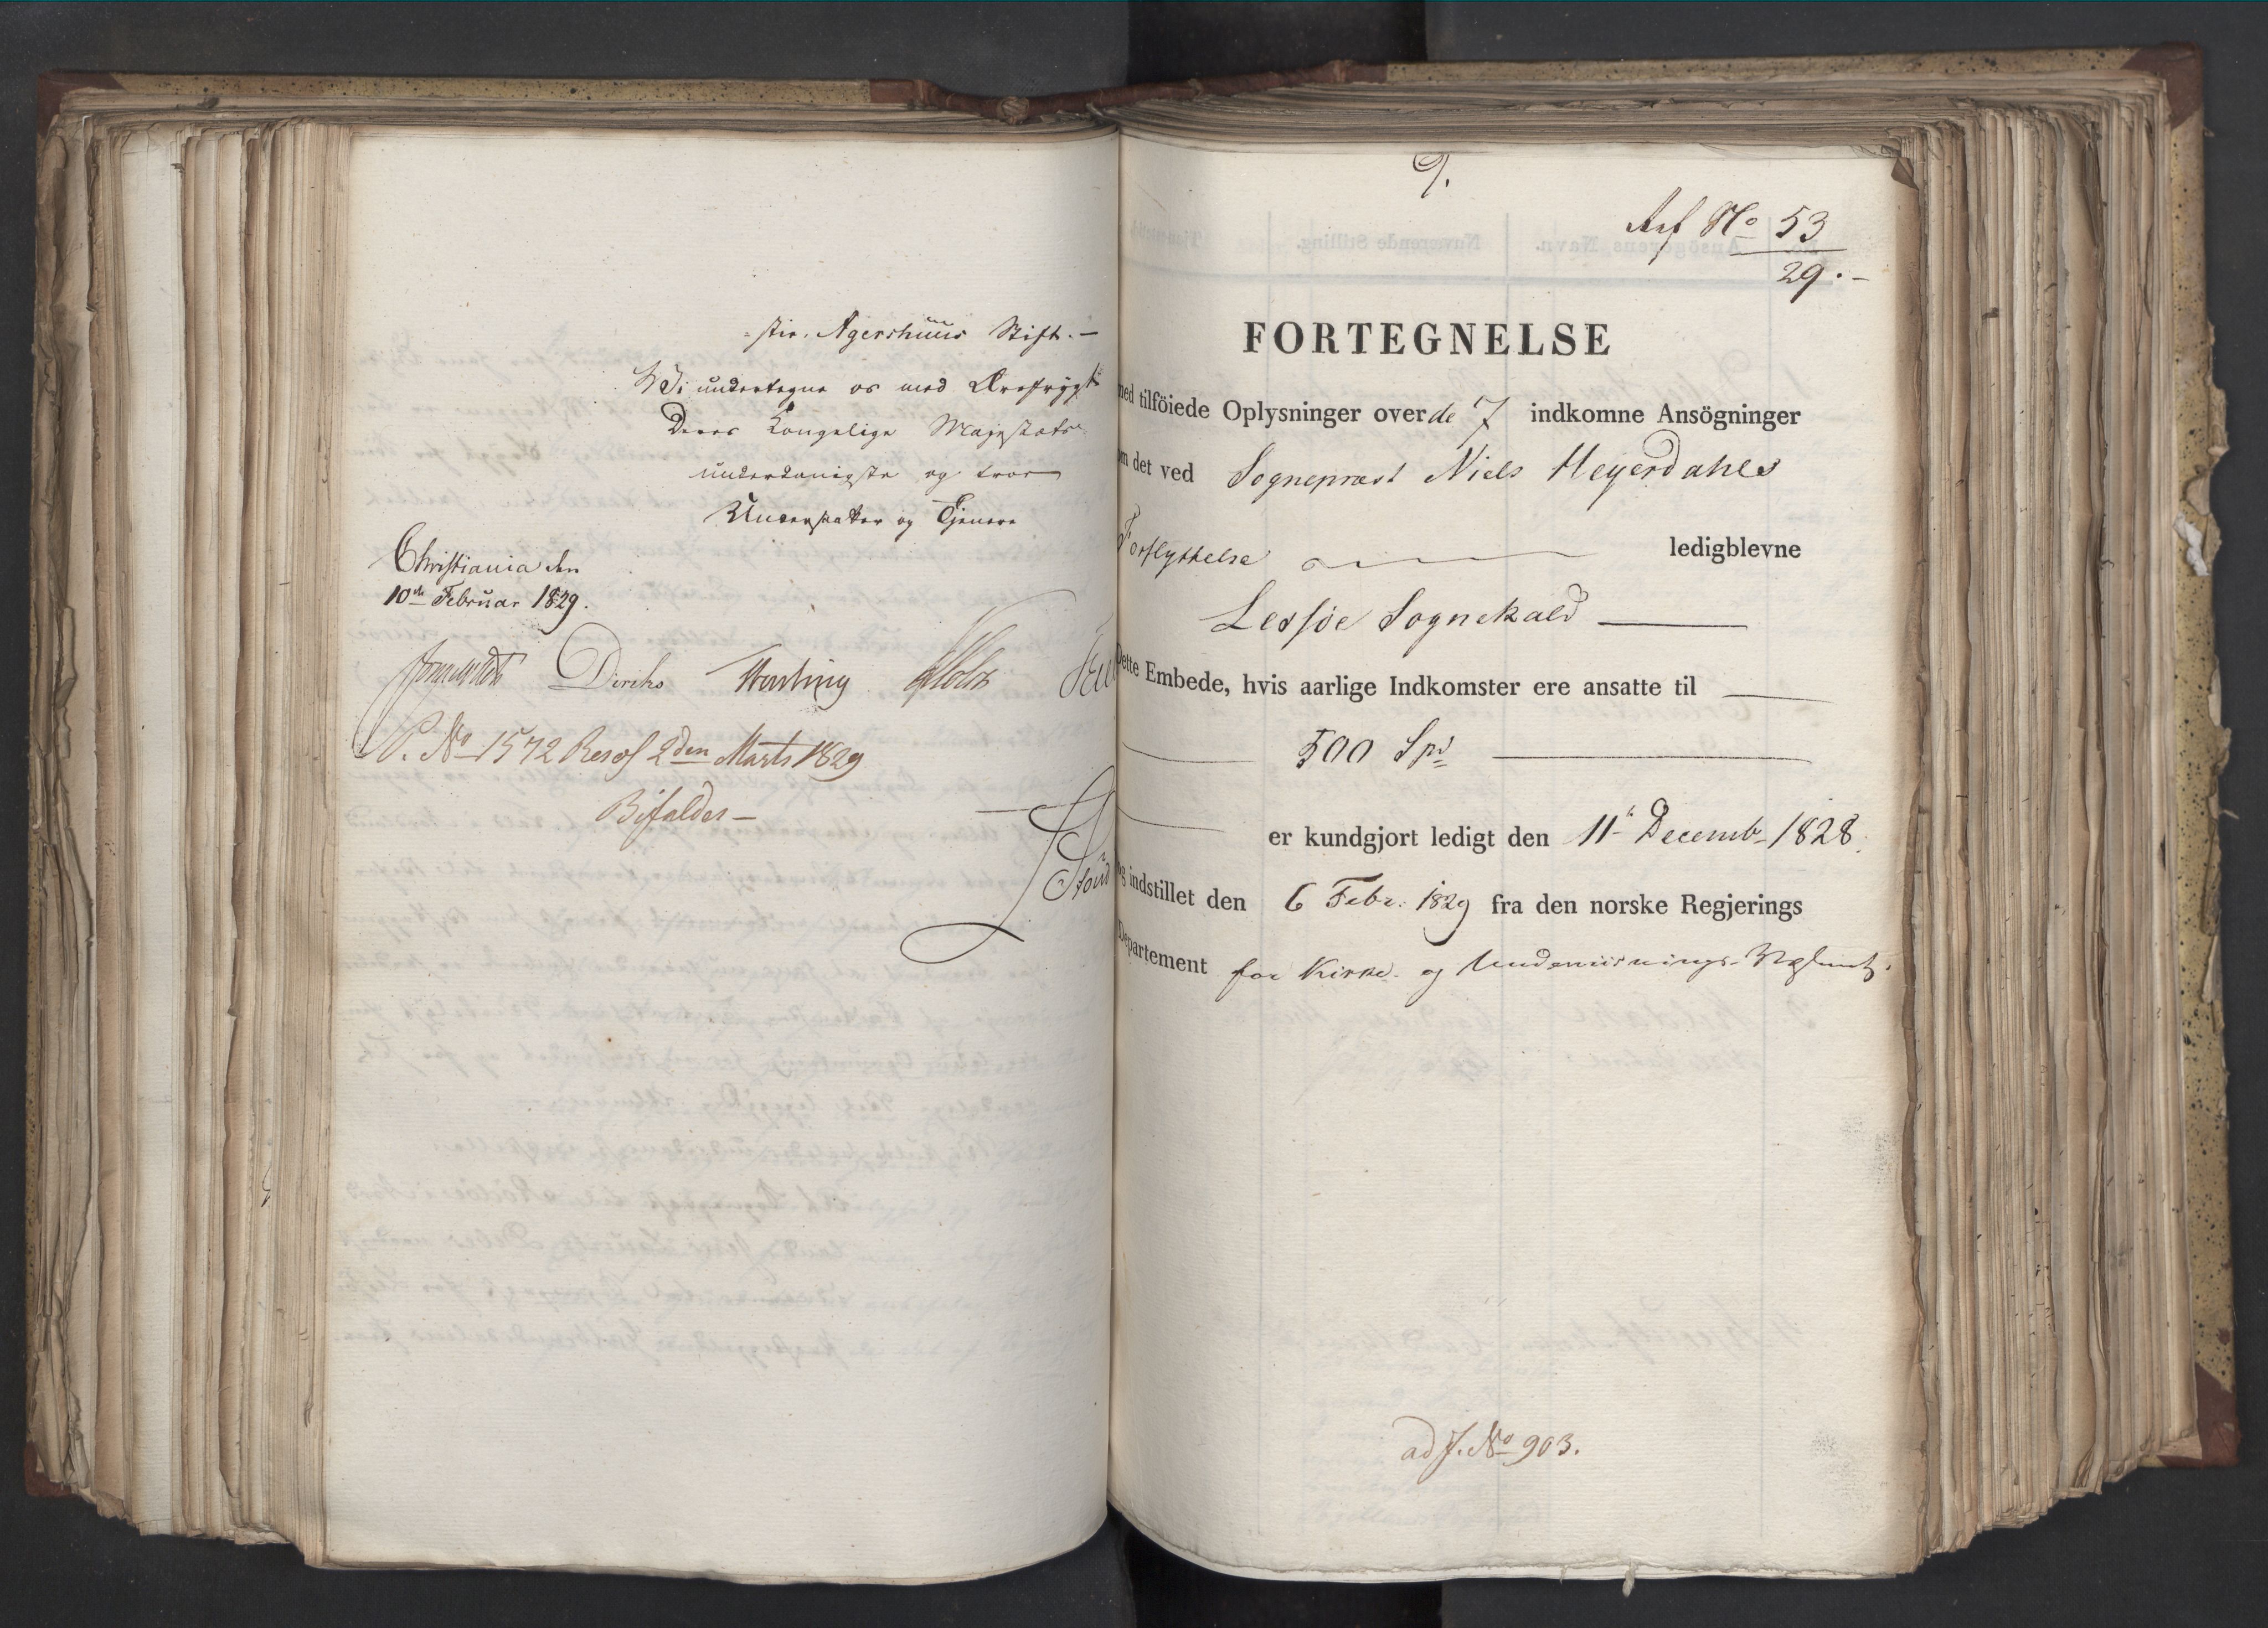 -stie. Agershuus Stift. —
Vi undertegne os med Ærefrygt
Deres Kongelige Majestæts
underdanigste og troe
Undersaatter og Tjenere
Christiania den
10de Februar 1829.
Diriks
P. No 1572 Resol 2den Marts 1829
Bifaldes —
9.
Ref No 53
29. —
FORTEGNELSE
med tilföiede Oplysninger over de 7 indkomne Ansögninger
om det ved Sognepræst Niels Heyerdahls
Forflyttelse ledigblevne
Lessøe Sognekald
Dette Embede, hvis aarlige Indkomster ere ansatte til
500 Spd
er kundgjort ledigt den 11te Decemb 1828.
og indstillet den 6 Febr. 1829 fra den norske Regjerings
Departement for Kirke- og Underviisnings-Væsenet.
ad J. No 903.